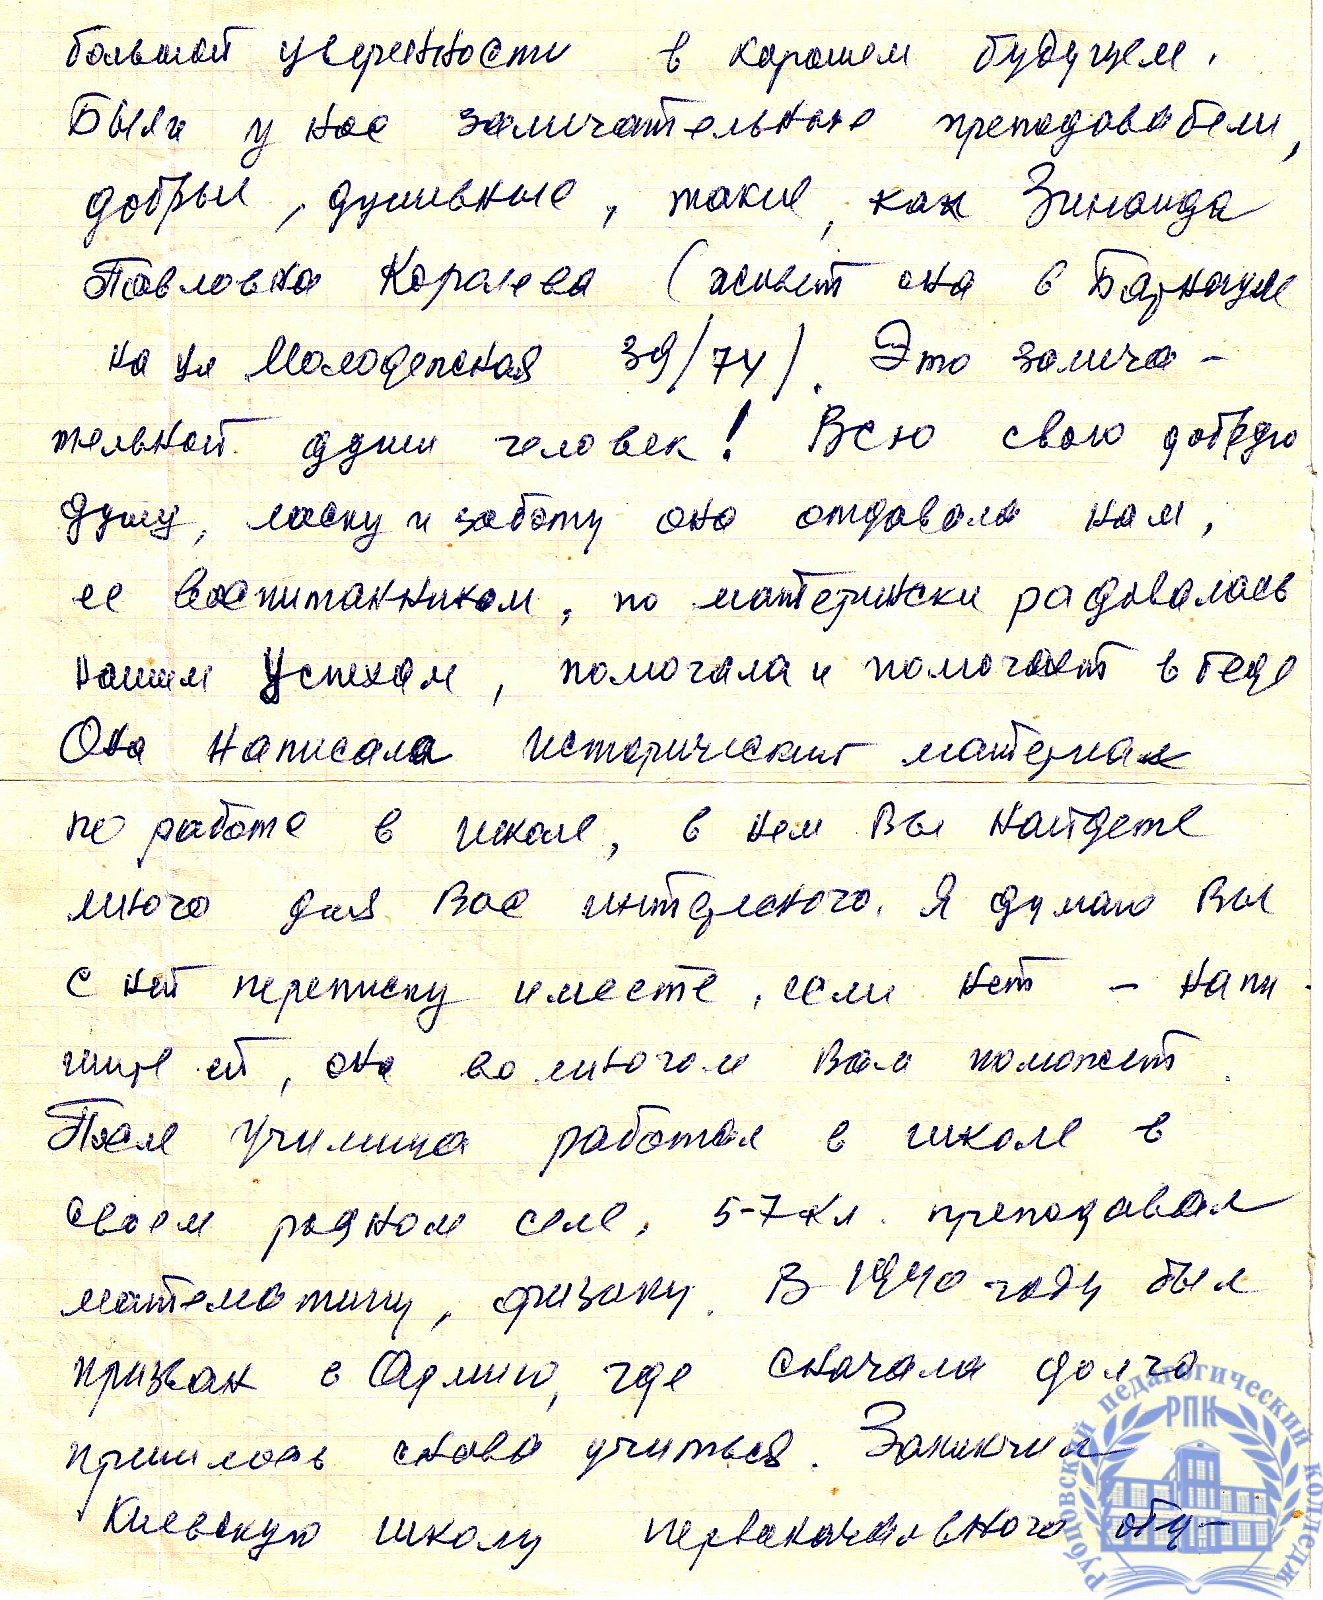 большой уверенности в хорошем будущем.
Были у нас замичательные преподаватели,
добрые, душевные, такие, как Зинаида
Павловна Королева (живет она в Барнауле
на ул Молодежная 39/74). Это замича-
тельной души человек! Всю свою добрую
душу, ласку и заботу она отдавала нам,
ее воспитанникам, по матерински радовалась
нашим успехам, помогала и помогает в беде
Она написала исторический материал
по работе в школе, в нем Вы найдете
много для Вас интересного. Я думаю Вы
с ней переписку имеете, если нет - напи-
шите ей, она во многом Вам поможет.
После училища работал в школе в
своем родном селе, 5-7 кл. преподавал
математику, физику. В 1940 году был
призван в Армию, где сначала долго
пришлось снова учиться. Закончил
Киевскую школу первоначального обу-
Рубцовский педагогический колледж
РПК